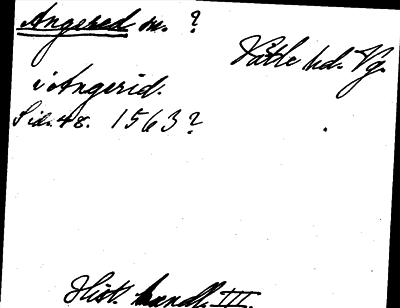 Angered m. ?
Vättle hd. Vg.
i Angerid.
Sid. 48. 1563?
Hist. handl. III.